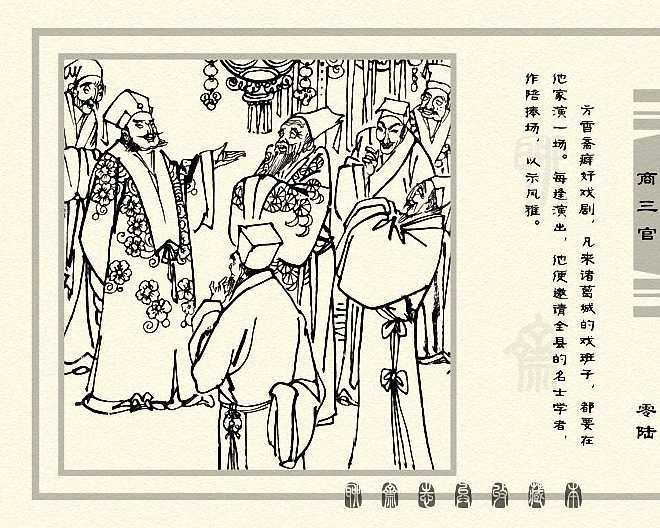 商三官
零陆
方霄斋癖好戏剧，凡来诸葛城的戏班子，都要在
他家演一场。每逢演出，他便邀请全县的名士学者，
作陪捧场，以示风雅。